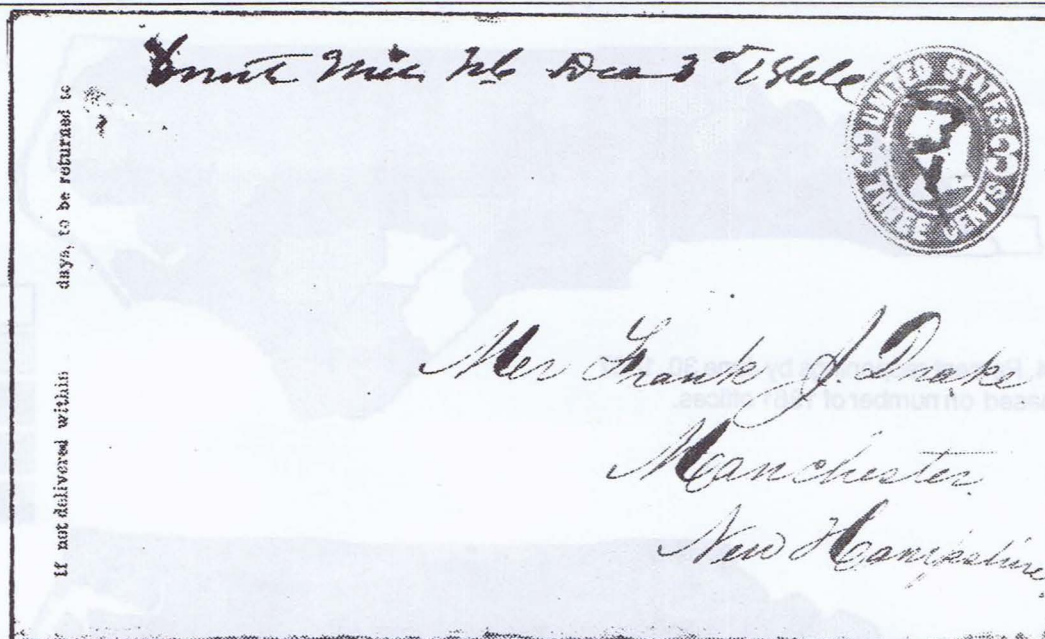 Dec 3d 1866
UNITED STATES
3 3
THREE CENTS
If not delivered within days, to be returned to
Mr Frank J. Drake
Manchester
New Hampshire